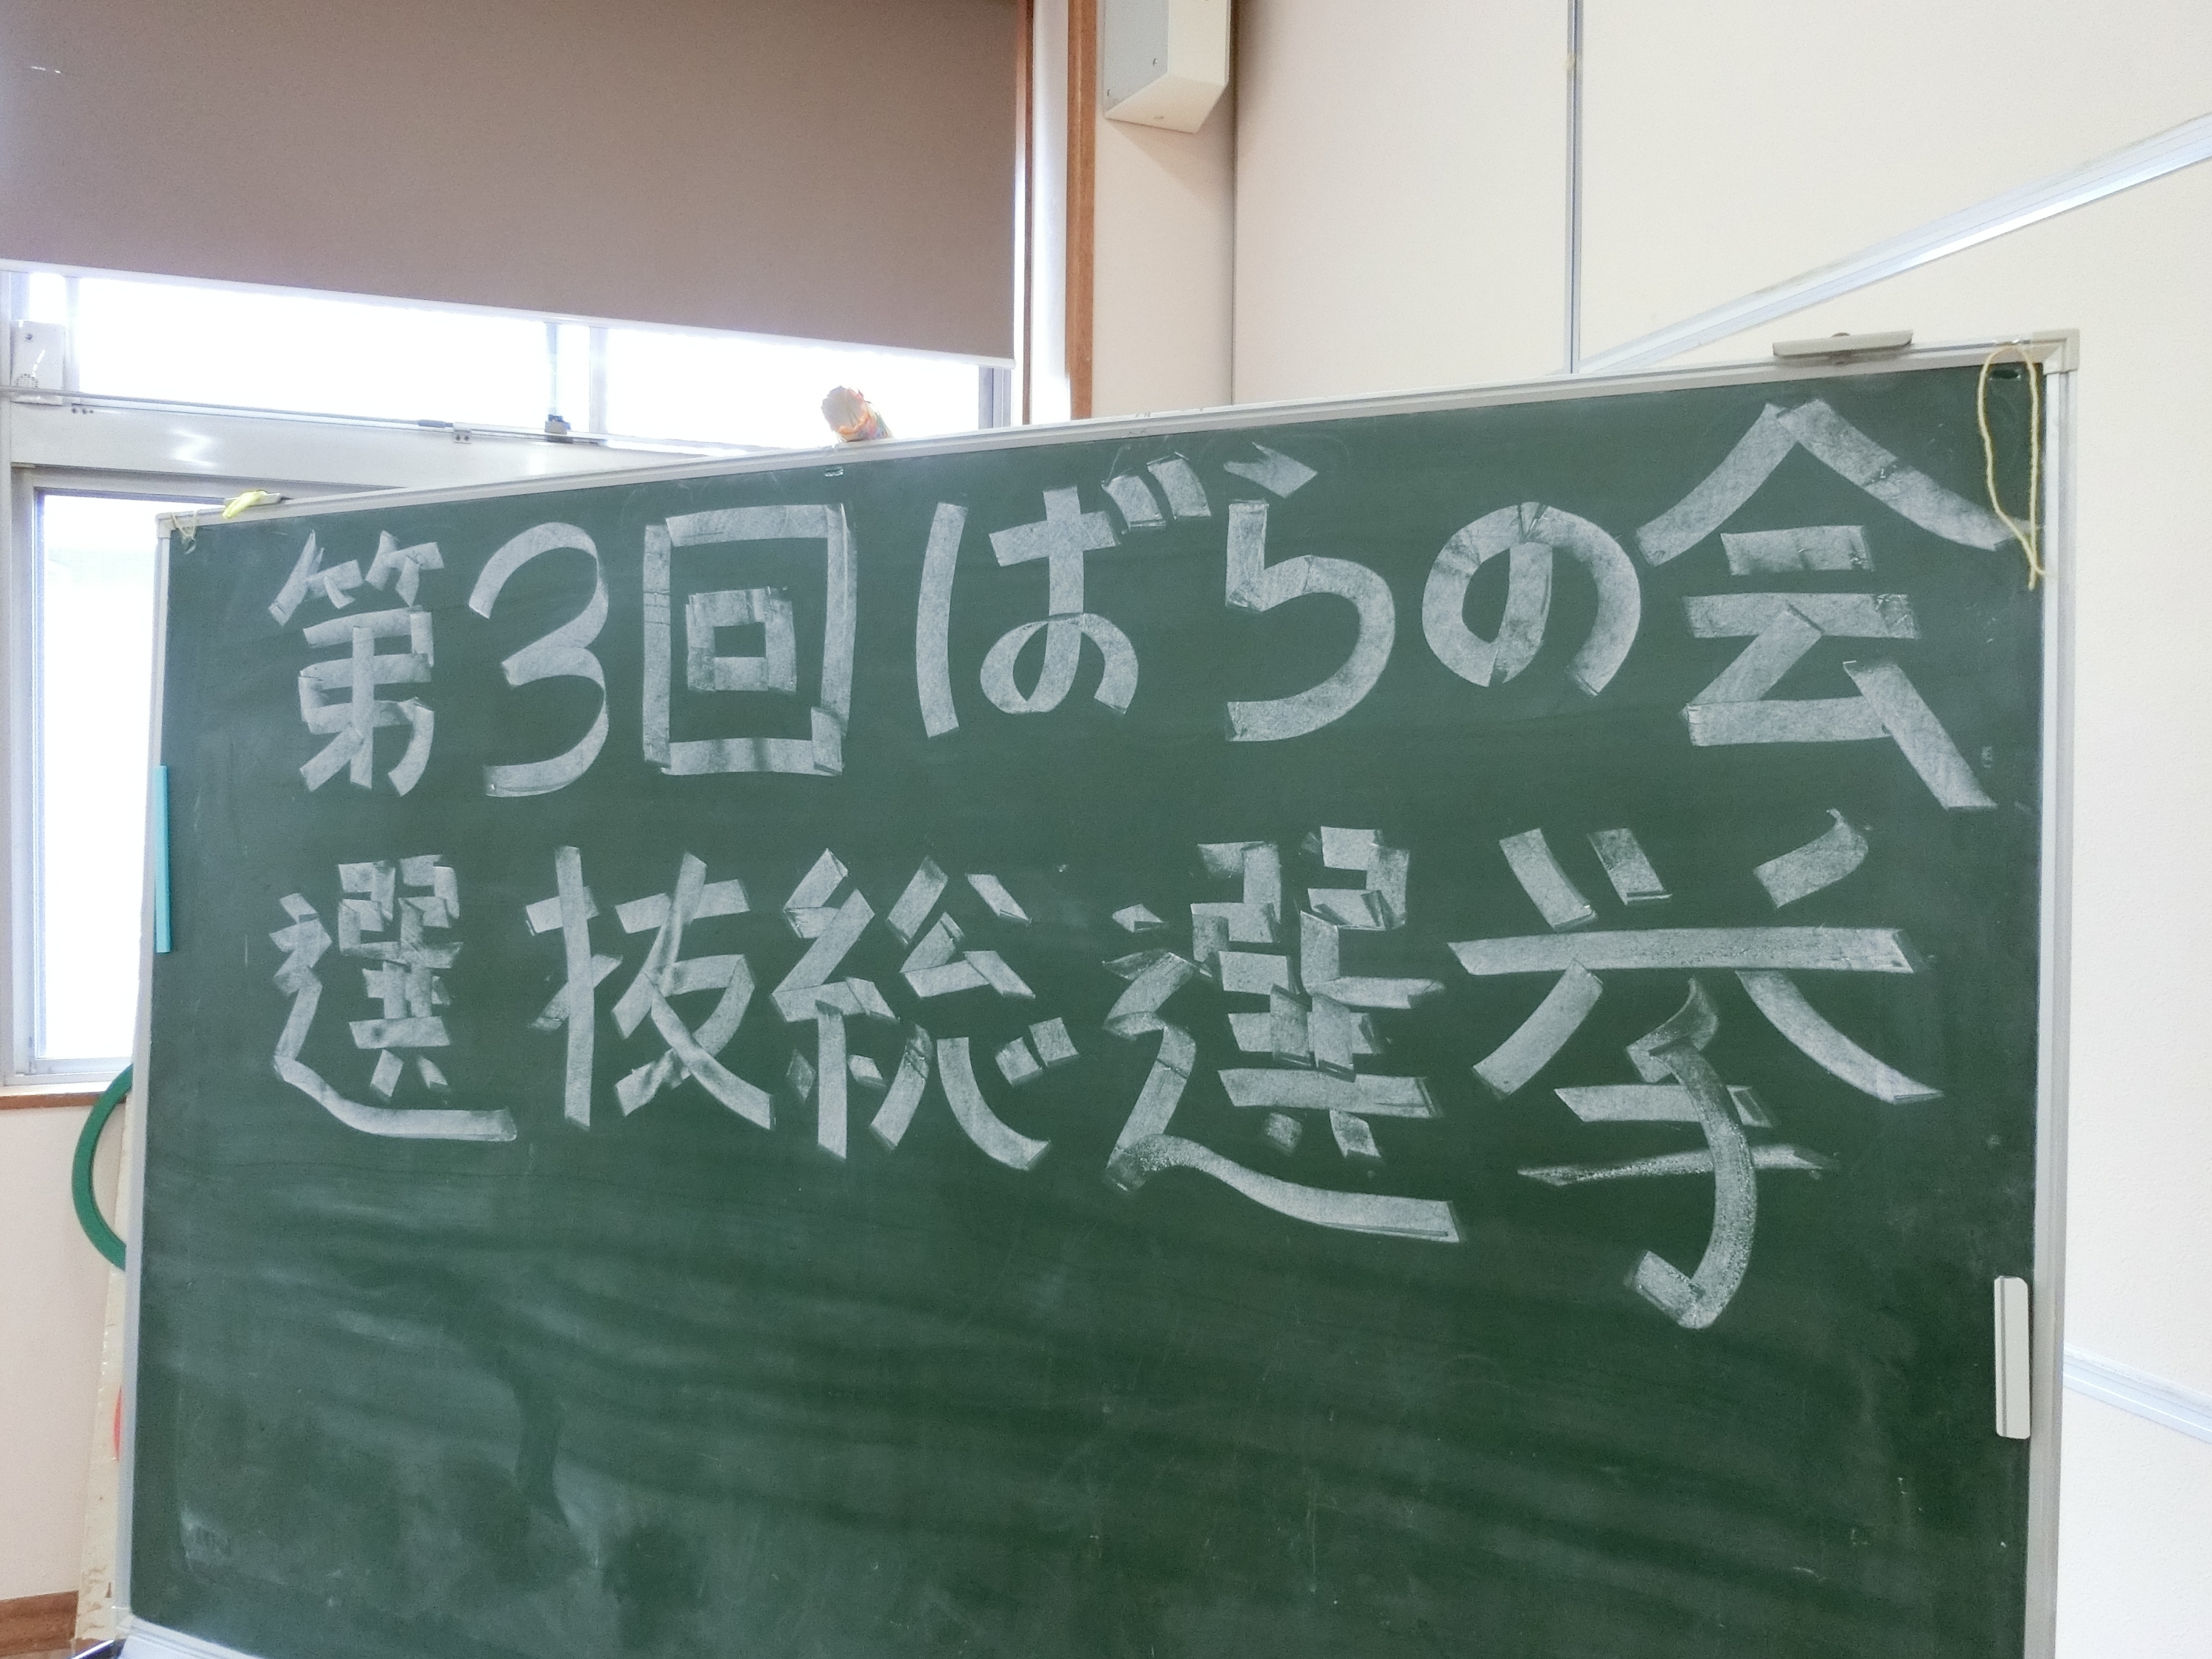 第3回ばらの会
選抜総選挙